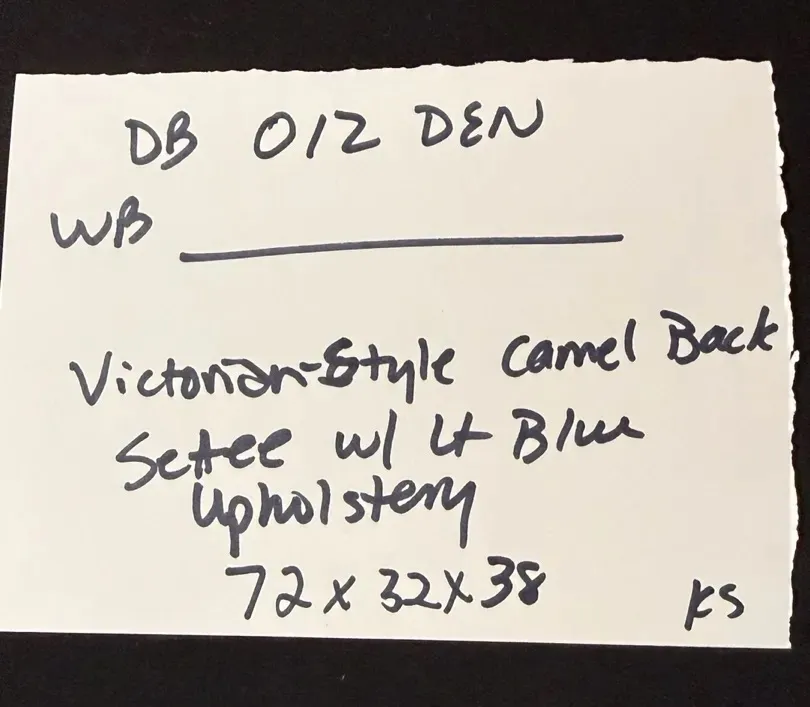 DB 012 DEN
WB
Victorian-Style Camel Back
Settee w/ Lt Blue
Upholstery
72 x 32 x 38
KS